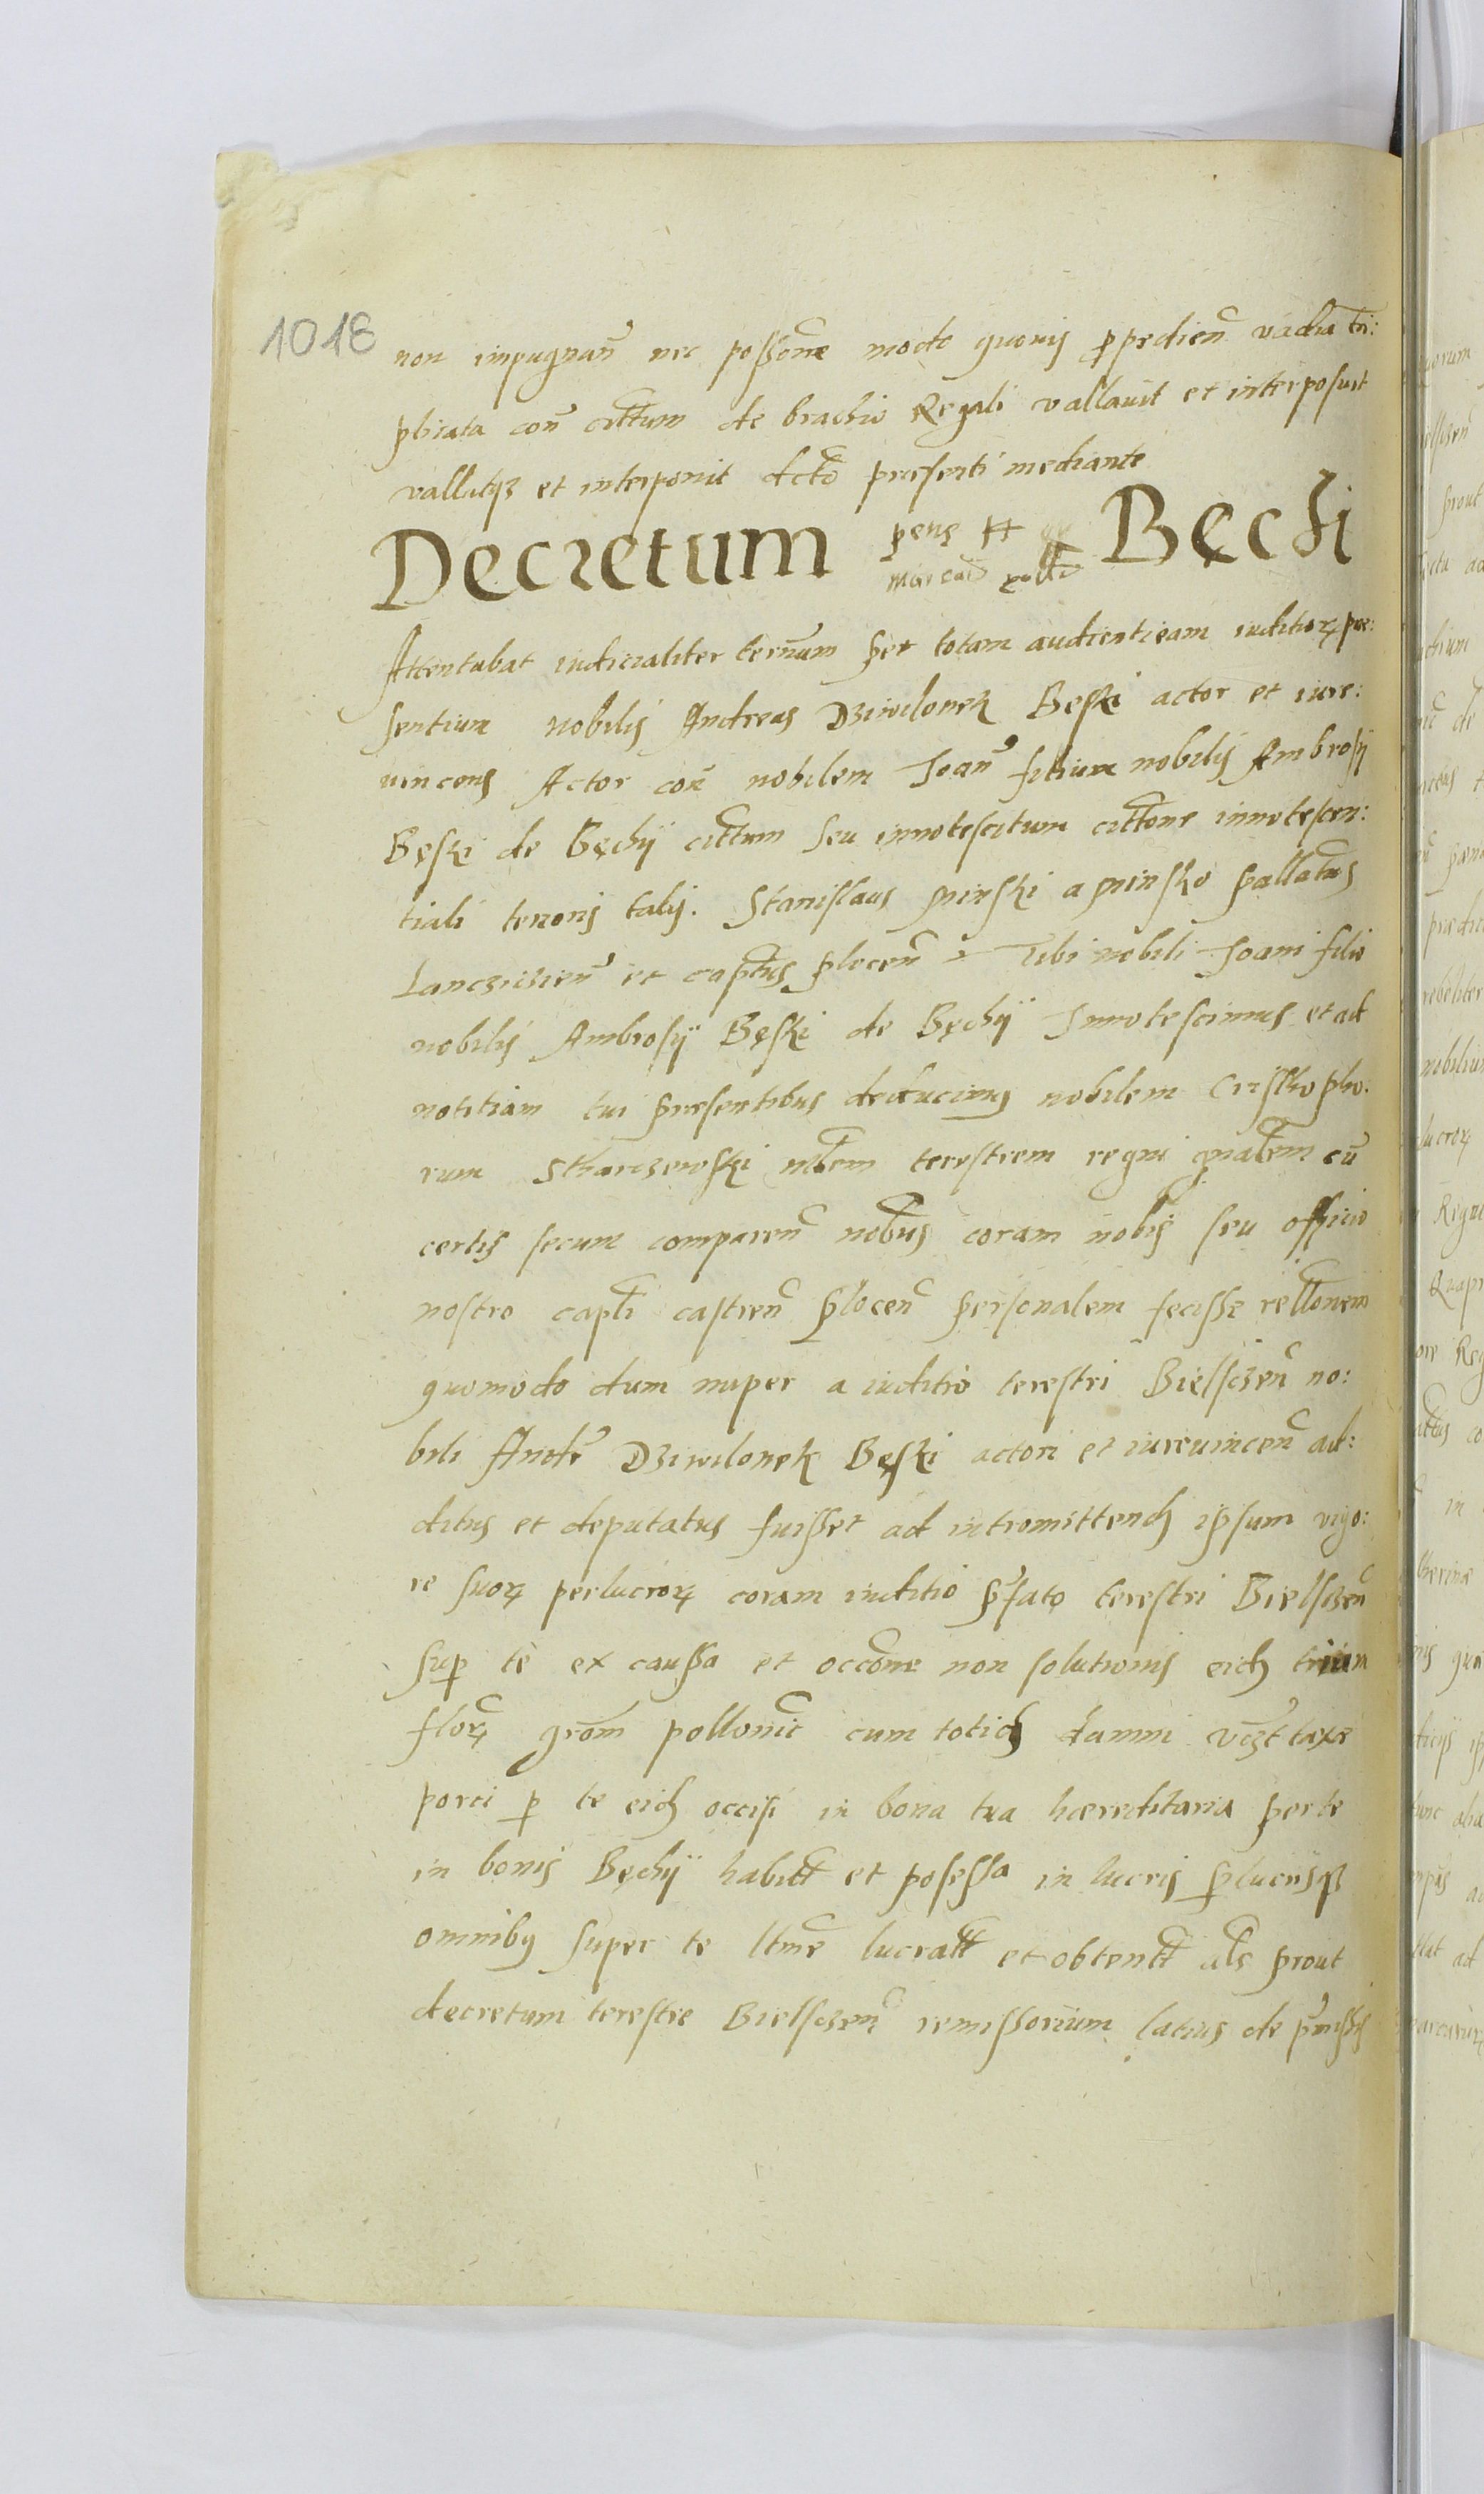 1018
non impugnañ nec possone modo quovis ppedien vadia tri:
plicata con cittum de brachio Regali vallavit et interposuit
vallatqz et interponit dcto presenti mediante
Decretum penes Bęchi
Attentabat iudicialiter ternum per totam audientieam iuditior pre:
sentium nobilis Andreas Dziwilonek Beski actor et iure:
vincens Actor con nobilem Joan filium nobilis Ambrosÿ
Bęski de Bęchÿ cittum seu innotescitum cittone innotescen:
tiali tenoris talis. Stanislaus Minski a Minsko pallatus
Lancziczien et captus plocen Tibi nobili Joani filio
nobilis Ambrosÿ Bęski de Bęchÿ Innotescimus et ad
notitiam tui presentibus deducimus nobilem Cristopho:
rum Stharczewski mlem terestrem regni gnalem cū
certis secum comparen nobus coram nobis seu officio
nostro capli castren plocen personalem fecisse rellonem
quomodo dum nuper a iuditio terestri Bielsczen no:
bili Andr Dziwilonek Bęski actori et iurevincen ad:
ditus et deputatus fuisset ad intromittend ipsum vigo:
re suor perlucror coram iuditio pfato terestri Bielsczen
sup te ex caussa et occone non solutionis eid trium
flor grom pollonic cum totid damni vczt taxa
porci p te eid occisi in bona tua hæreditaria per te
in bonis Bęchÿ habitt et posessa in lucris plucrisqz
omnibus super te ltme lucratt et obtentt als prout
decretum terestre Bielsczen remissorium latius de pmissis